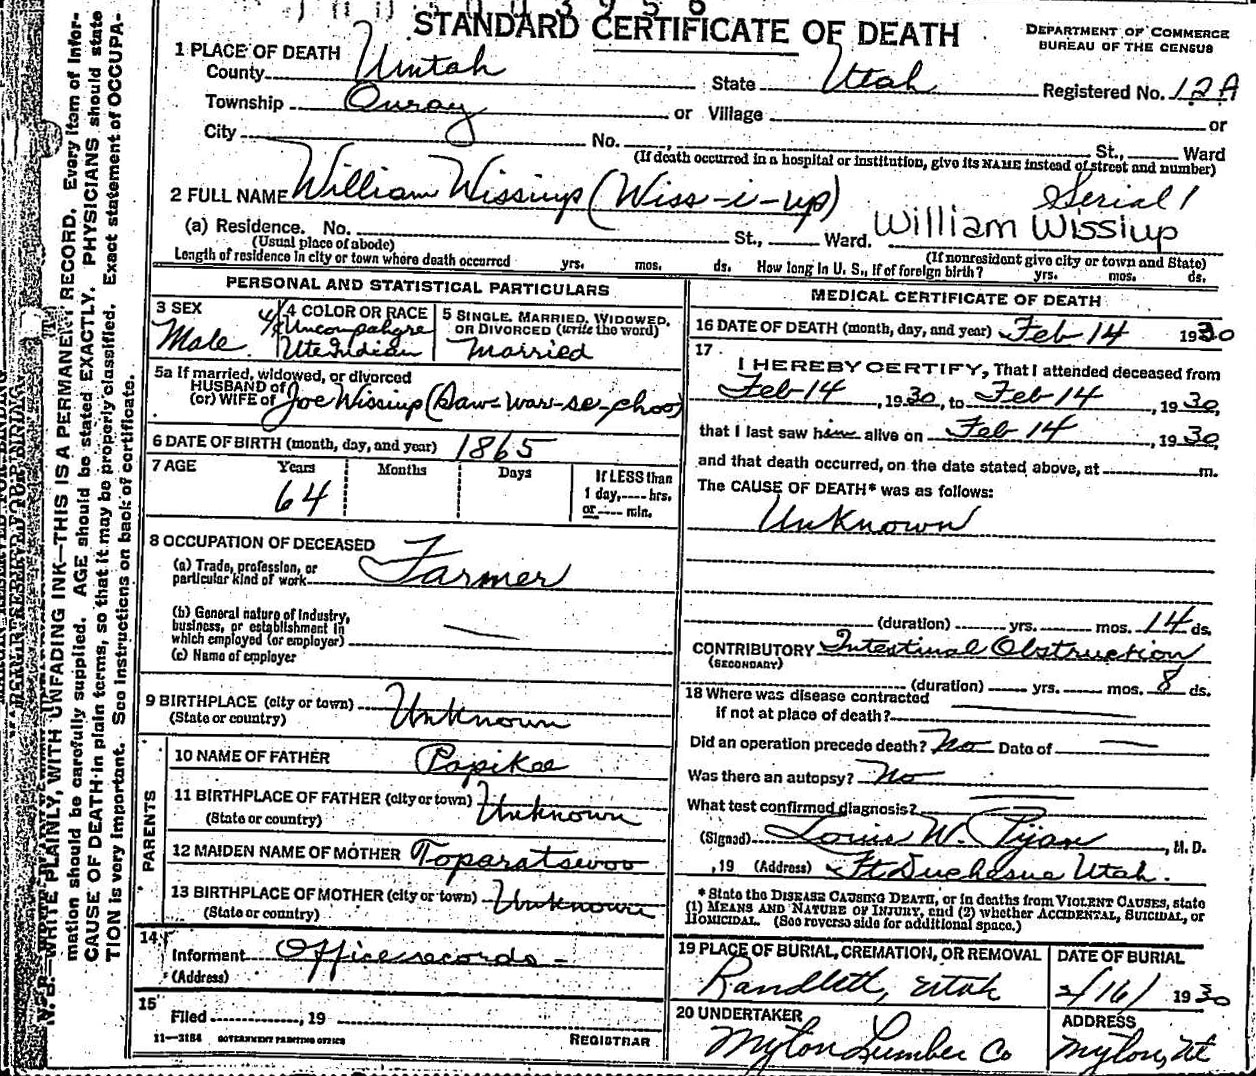 STANDARD CERTIFICATE OF DEATH
DEPARTMENT OF COMMERCE
BUREAU OF THE CENSUS
1 PLACE OF DEATH
County Uintah State Utah Registered No. 12A
Township Ouray or Village or
City No. , St., Ward
(If death occurred in a hospital or institution, give its NAME instead of street and number)
2 FULL NAME William Wissiup (Wiss-i-up) Serial 1
(a) Residence. No. St., Ward. William Wissiup
(Usual place of abode) (If nonresident give city or town and State)
Length of residence in city or town where death occurred yrs. mos. ds. How long in U. S., if of foreign birth? yrs. mos. ds.
PERSONAL AND STATISTICAL PARTICULARS
3 SEX
Male
4 COLOR OR RACE
4/4 Uncompahgre
Ute Indian
5 SINGLE, MARRIED, WIDOWED,
OR DIVORCED (write the word)
Married
5a If married, widowed, or divorced
HUSBAND of
(or) WIFE of Joe Wissiup (Saw-war-se-choo)
6 DATE OF BIRTH (month, day, and year) 1865
7 AGE Years Months Days If LESS than
64 1 day, hrs.
or min.
8 OCCUPATION OF DECEASED
(a) Trade, profession, or
particular kind of work Farmer
(b) General nature of Industry,
business, or establishment in
which employed (or employer) —
(c) Name of employer
9 BIRTHPLACE (city or town) Unknown
(State or country)
PARENTS
10 NAME OF FATHER Papikee
11 BIRTHPLACE OF FATHER (city or town) Unknown
(State or country)
12 MAIDEN NAME OF MOTHER Toparatsewoo
13 BIRTHPLACE OF MOTHER (city or town) Unknown
(State or country)
14
Informant Office records -
(Address)
15
Filed , 19
REGISTRAR
11—3184 GOVERNMENT PRINTING OFFICE
MEDICAL CERTIFICATE OF DEATH
16 DATE OF DEATH (month, day, and year) Feb 14 1930
17
I HEREBY CERTIFY, That I attended deceased from
Feb-14, 1930, to Feb-14, 1930,
that I last saw him alive on Feb 14, 1930,
and that death occurred, on the date stated above, at m.
The CAUSE OF DEATH* was as follows:
Unknown
(duration) yrs. mos. 14 ds.
CONTRIBUTORY Intestinal Obstruction
(SECONDARY)
(duration) yrs. mos. 8 ds.
18 Where was disease contracted
if not at place of death?
Did an operation precede death? No Date of —
Was there an autopsy? No
What test confirmed diagnosis? —
(Signed) Louis W. Pijan, M. D.
, 19 (Address) Ft Duchesne Utah.
* State the DISEASE CAUSING DEATH, or in deaths from VIOLENT CAUSES, state
(1) MEANS AND NATURE OF INJURY, and (2) whether ACCIDENTAL, SUICIDAL, or
HOMICIDAL. (See reverse side for additional space.)
19 PLACE OF BURIAL, CREMATION, OR REMOVAL
Randlett, Utah
DATE OF BURIAL
2/16/ 1930
20 UNDERTAKER
Myton Lumber Co
ADDRESS
Myton, Ut
N. B.—WRITE PLAINLY, WITH UNFADING INK—THIS IS A PERMANENT RECORD. Every item of infor-
mation should be carefully supplied. AGE should be stated EXACTLY. PHYSICIANS should state
CAUSE OF DEATH in plain terms, so that it may be properly classified. Exact statement of OCCUPA-
TION is very important. See instructions on back of certificate.